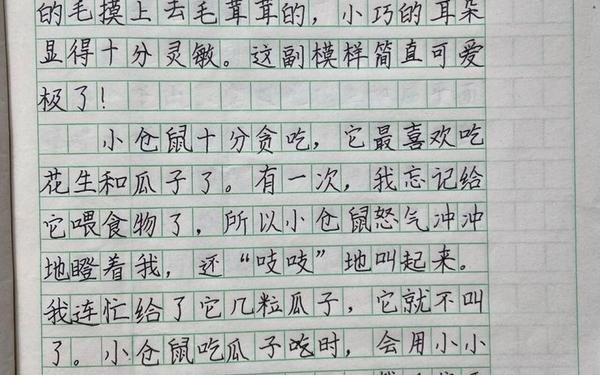 的毛摸上去毛茸茸的，小巧的耳朵
显得十分灵敏。这副模样简直可爱
极了！
小仓鼠十分贪吃，它最喜欢吃
花生和瓜子了。有一次，我忘记给
它喂食物了，所以小仓鼠怒气冲冲
地瞪着我，还“吱吱”地叫起来。
我连忙给了它几粒瓜子，它就不叫
了。小仓鼠吃瓜子吃时，会用小小